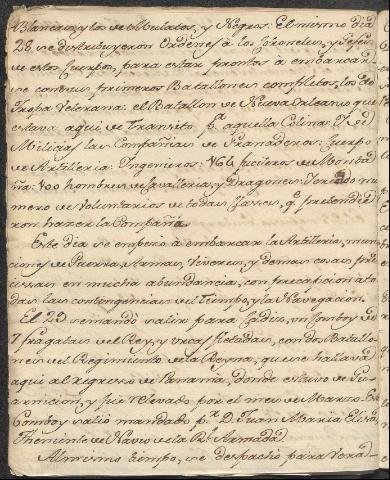 Blancos, y los de Mulatos, y Negros: El mismo dia
28 se distribuyeron Ordenes à los Coroneles, y Gefes
de estos Cuerpos, para estar prontos à embarcar-
se con sus primeros Batallones completos, los de
Tropa Veterana: el Batallon de Nueva Orleans que
estava aqui de Transito pa. aquella Colonia: Y de
Milicias las Compañias de Granaderos: Cuerpo
de Artilleria: Ingenieros: 164 fucileros de Monta
ña: 400 hombres de Cavalleria, y Dragones: Crecido nu
mero de Voluntarios de todas Clases, q. pretendie
ron hazer la Compañia.
Este dia se empezò à embarcar la Artilleria, muni
ciones de Guerra, Armas, Viveres, y demas cosas pre
cissas en mucha abundancia, con precaucion a to
das las contingencias del Tiempo, y la Navegacion.
El 29 se mandò salir para Cadiz, un Comboy de
7 fragatas del Rey, y urcas fletadas, con dos Batallo
nes del Regimiento de la Reyna, que se hallava
aqui al regreso de Panamà, donde estuvo de Gu
arnicion, y fue relevado por el mes de Marzo. Este
Comboy saliò mandado pr. D. Juan Maria
Theniente de Navio de la Rl. Armada.
Al mismo tiempo, se despachò para Vera-